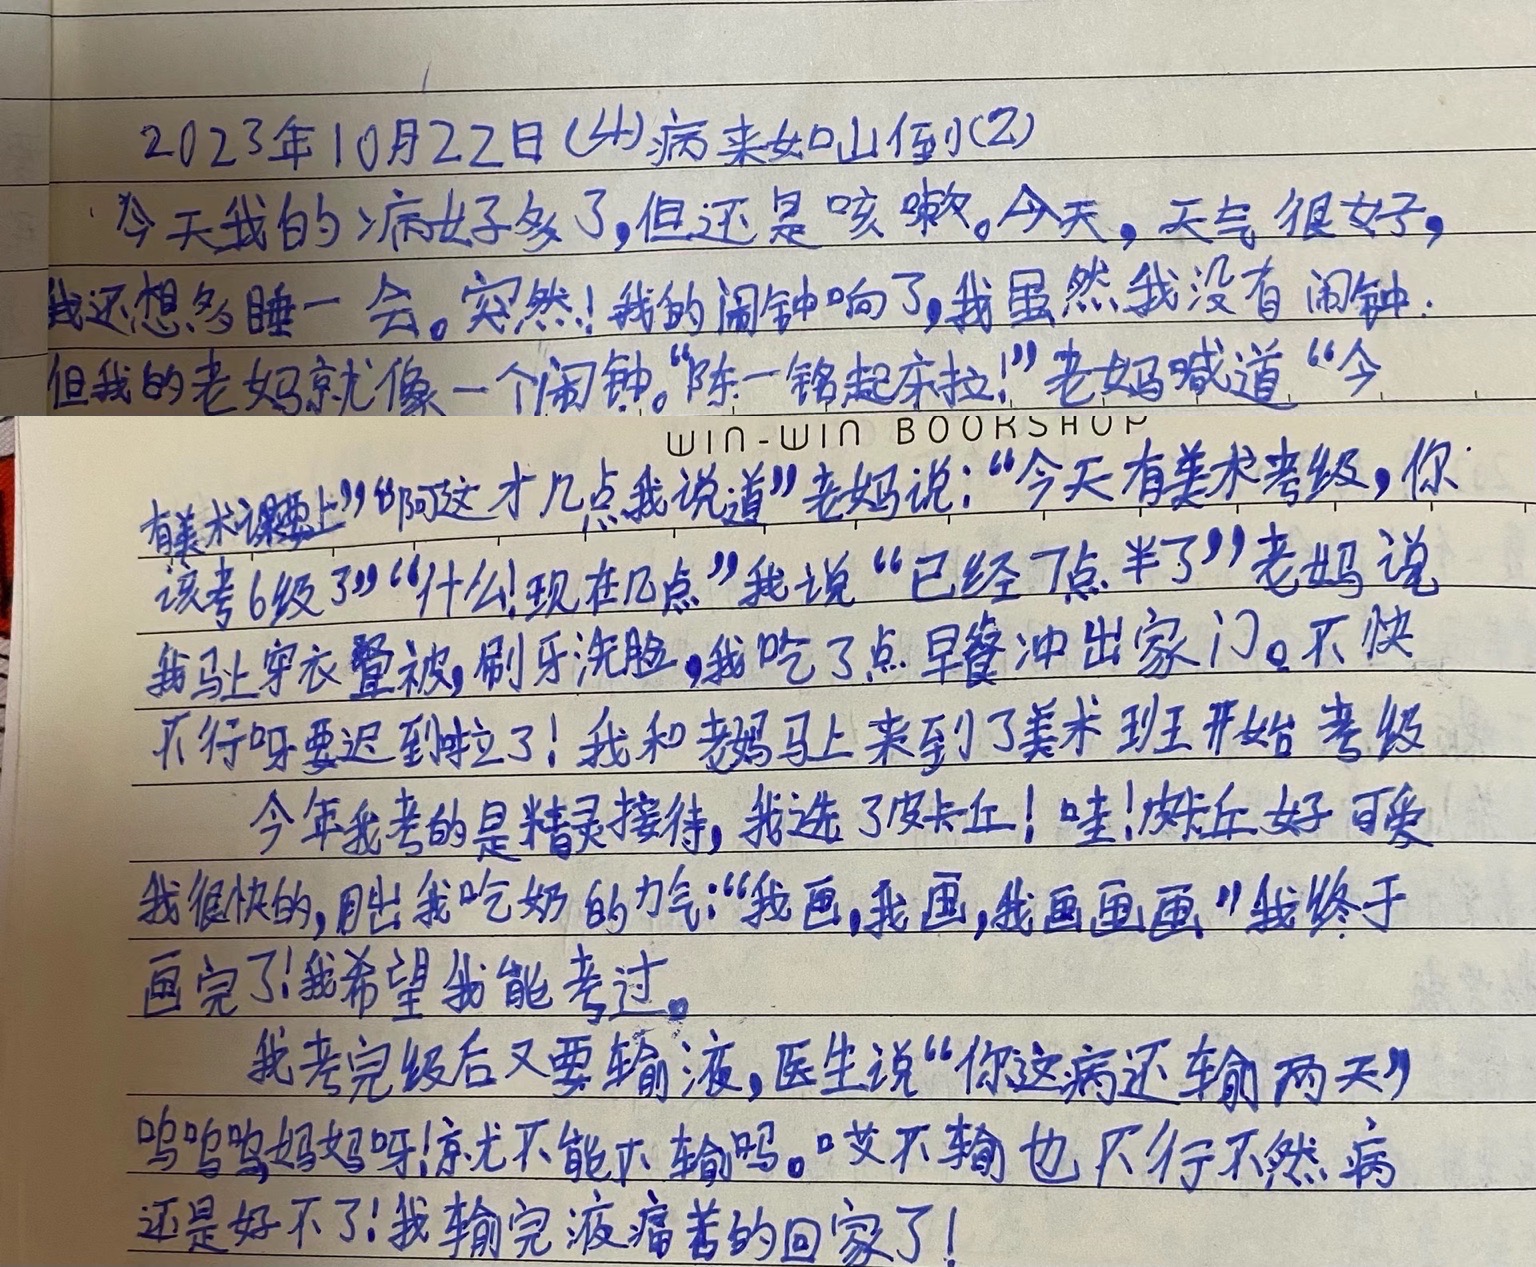 2023年10月22日(4)病来如山倒(2)
今天我的病好多了,但还是咳嗽。今天,天气很好,
我还想多睡一会。突然!我的闹钟响了,我虽然我没有闹钟.
但我的老妈就像一个闹钟。“陈一铭起床拉!”老妈喊道“今
WIN-WIN BOOKSHOP
有美术课要上”“啊这才几点我说道”老妈说:“今天有美术考级,你
该考6级了”“什么!现在几点”我说“已经7点半了”老妈说
我马上穿衣叠被,刷牙洗脸,我吃了点早餐冲出家门。不快
不行呀要迟到啦了!我和老妈马上来到了美术班开始考级
今年我考的是精灵接待,我选了皮卡丘!哇!皮卡丘好可爱
我很快的,用出我吃奶的力气:“我画,我画,我画画画”我终于
画完了!我希望我能考过。
我考完级后又要输液,医生说“你这病还输两天”
呜呜呜妈妈呀!就不能不输吗。哎不输也不行不然病
还是好不了!我输完液痛苦的回家了!